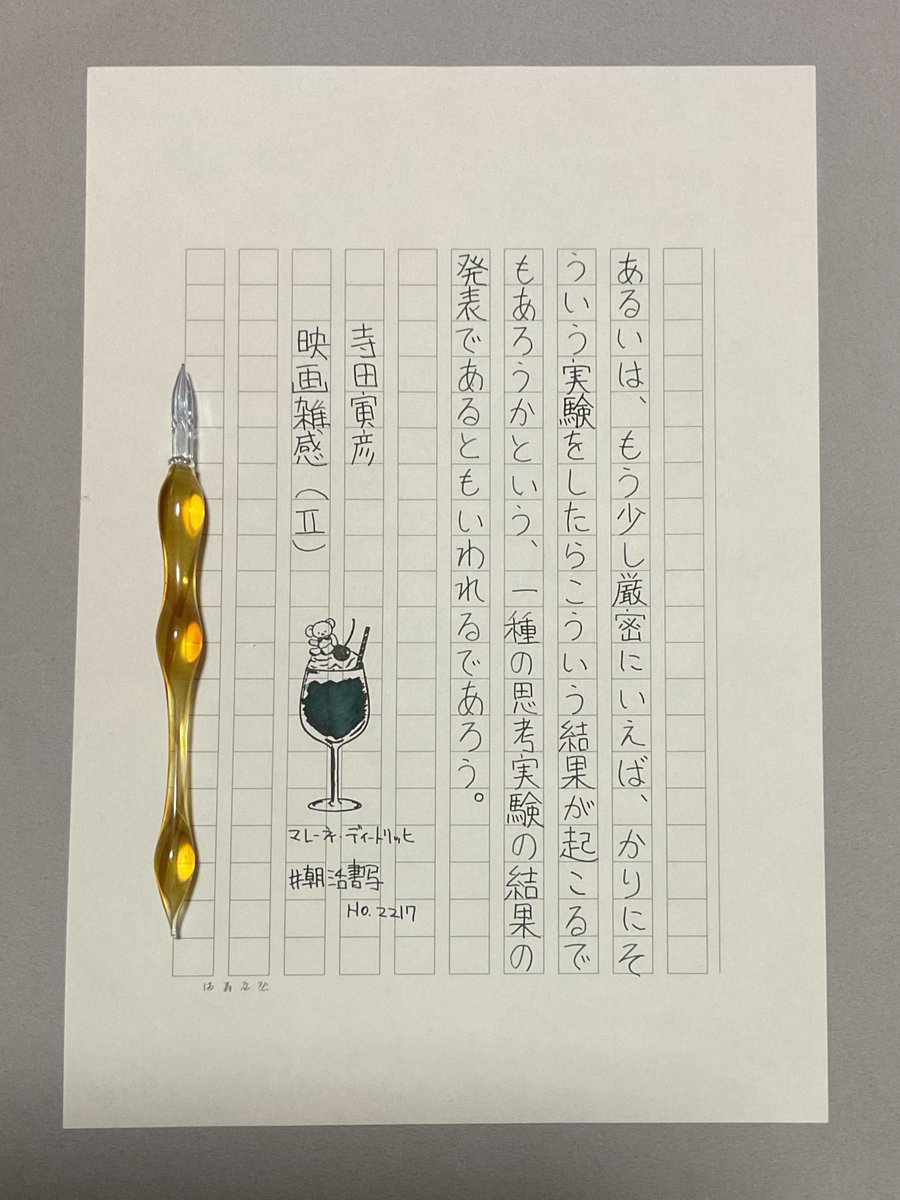 あるいは、もう少し厳密にいえば、かりにそ
ういう実験をしたらこういう結果が起こるで
もあろうかという、一種の思考実験の結果の
発表であるともいわれるであろう。
寺田寅彦
映画雑感(Ⅱ)
マレーネ・ディートリッヒ
#朝活書写
No.2217